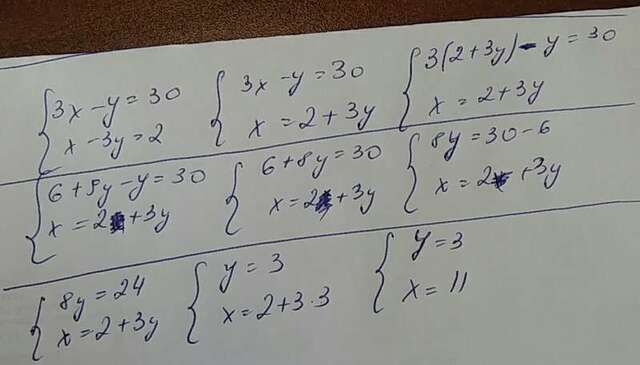 3x - y = 30
x - 3y = 2
3x - y = 30
x = 2 + 3y
3(2 + 3y) - y = 30
x = 2 + 3y
6 + 9y - y = 30
x = 2 + 3y
6 + 8y = 30
x = 2 + 3y
8y = 30 - 6
x = 2 + 3y
8y = 24
x = 2 + 3y
y = 3
x = 2 + 3 · 3
y = 3
x = 11